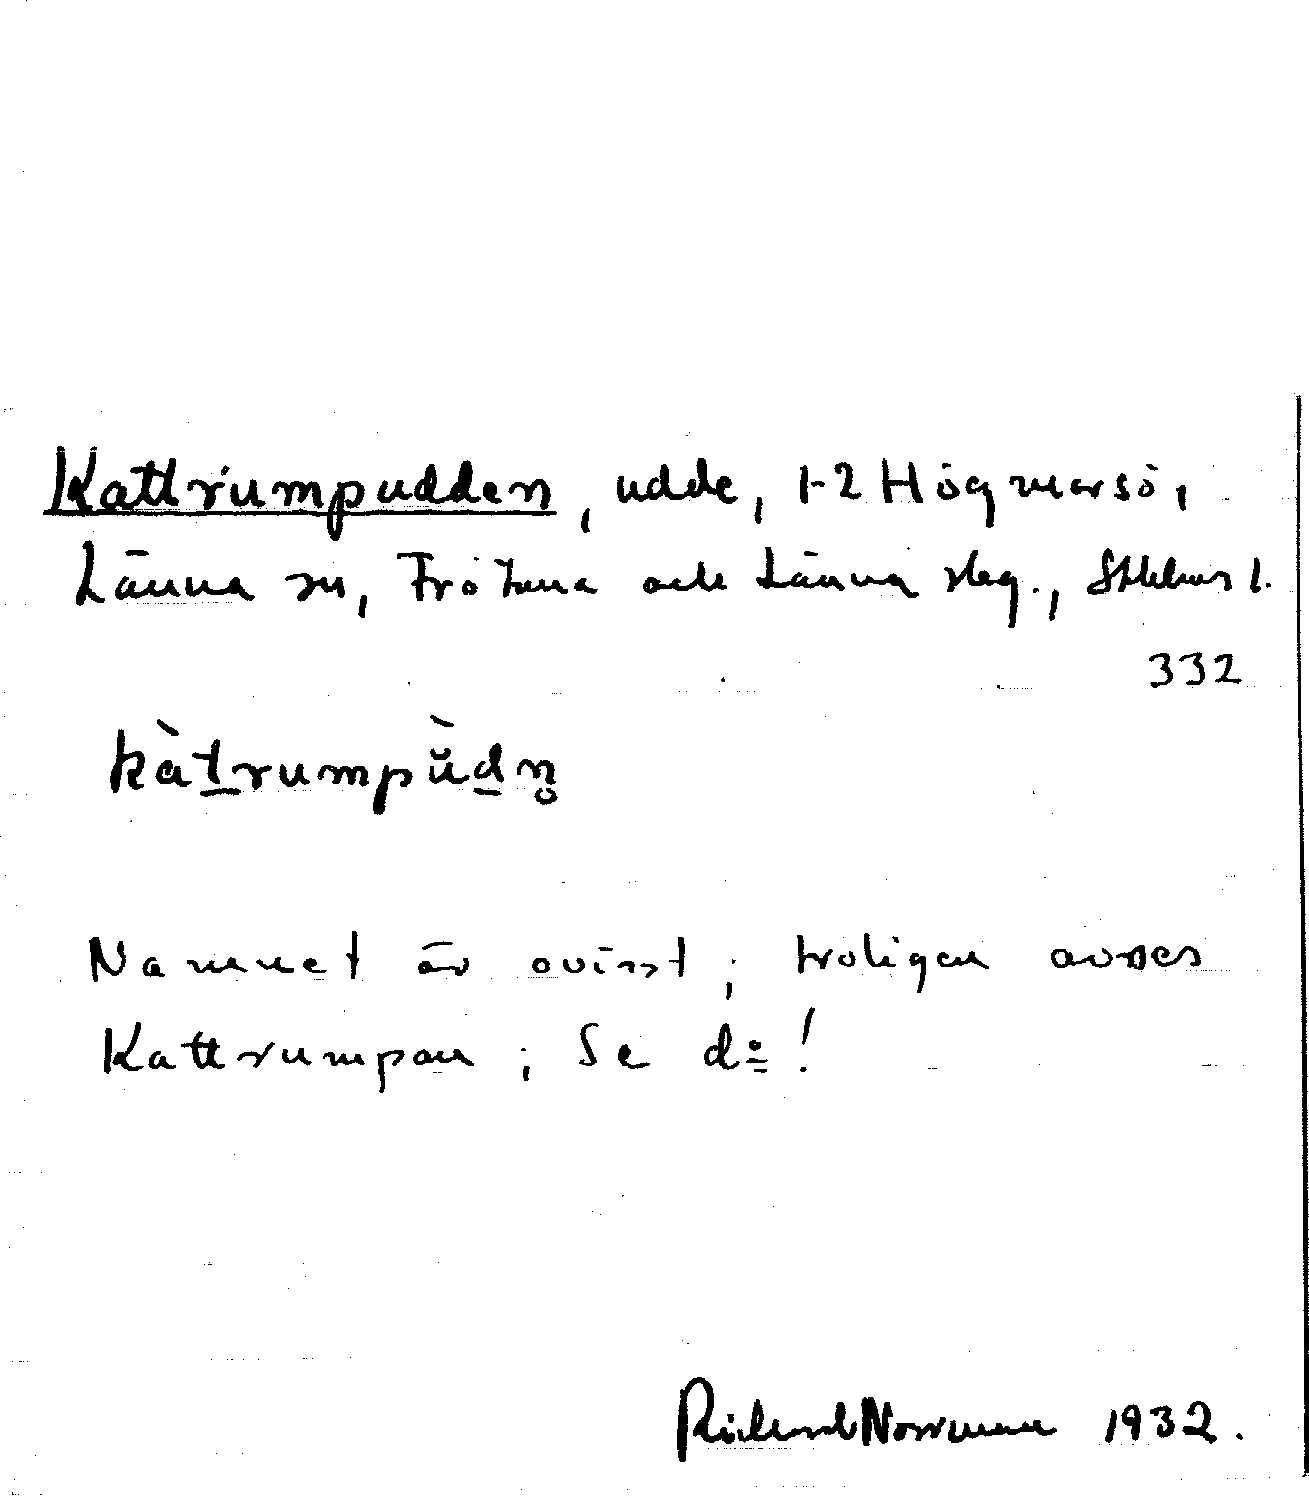 Kattrumpudden, udde, 1-2 Högmarsö,
Länna sn, Frötuna och Länna slag., Sthlms l.
332
kàt̲rumpŭ̀d̲n̥
Namnet är ovisst; troligen avses
Kattrumpan; Se do!
Richard Norrman 1932.